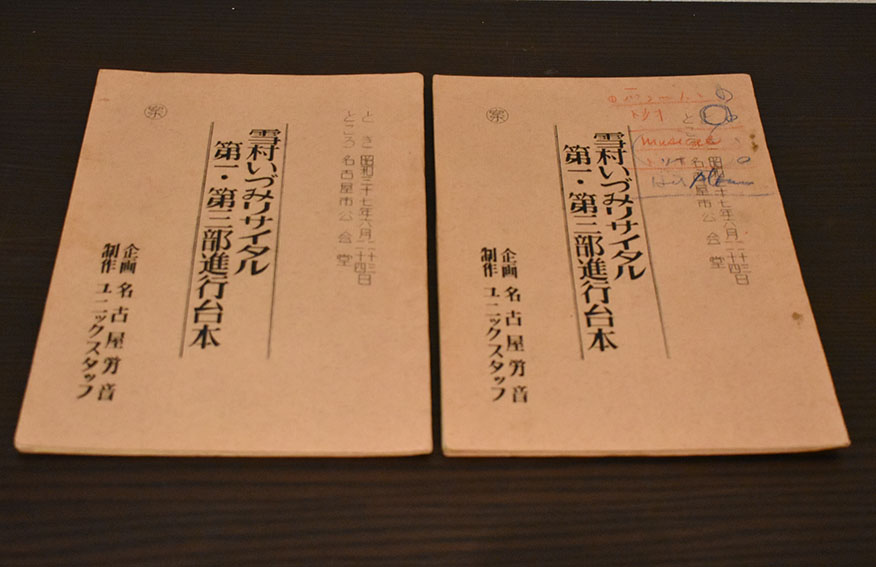 案
とき 昭和三十七年六月二十三日二十四日
ところ 名古屋市公会堂
雪村いづみリサイタル
第一・第三部進行台本
企画 名古屋労音
制作 ユニックスタッフ
案
トリオ
musical
名古屋市公会堂
雪村いづみリサイタル
第一・第三部進行台本
企画 名古屋労音
制作 ユニックスタッフ